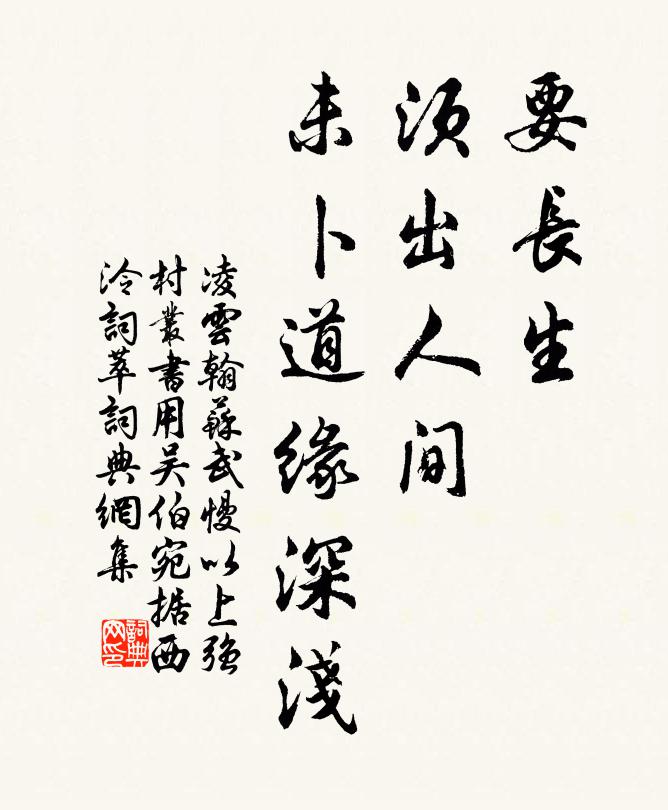 要長生
須出人间
未卜道緣深淺
凌雲翰蘇武慢以上強
村叢書用吴伯宛据西
泠詞萃詞典網集
詞典网印